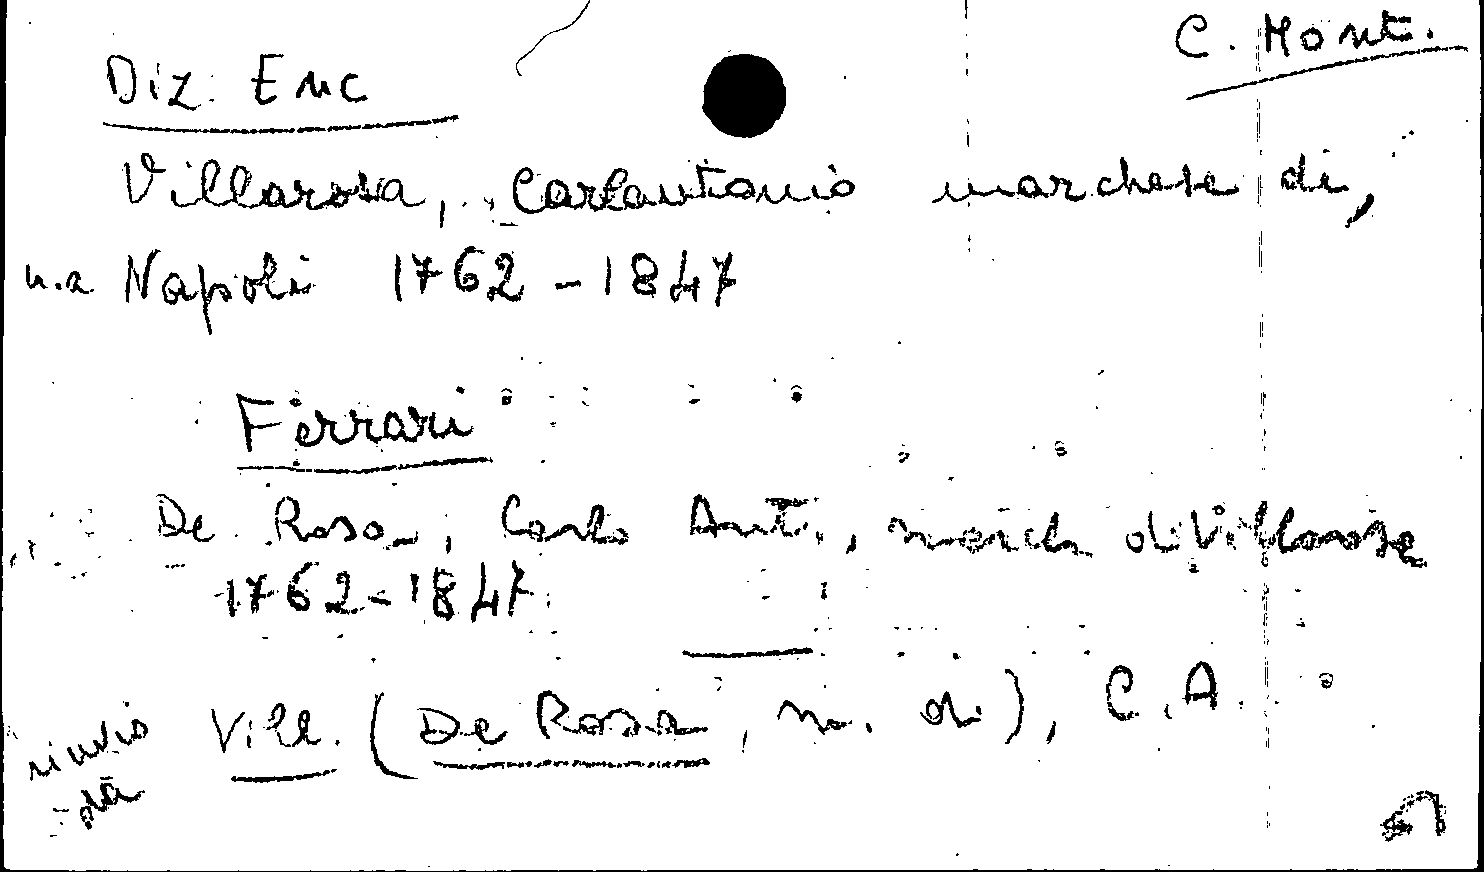 C. Mont.
Diz. Enc
Villarosa, Carlantonio marchese di,
n. a Napoli 1762-1847
Ferrari
De Rosa, Carlo Ant., march di Villarosa
1762-1847
rinvio Vill. (De Rosa, m. di), C.A.